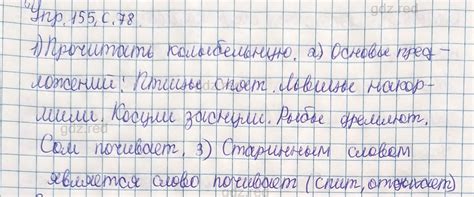 Упр. 155, с. 78.
1) Прочитать колыбельную. 2) Основы пред-
ложений: Птицы спят. Львицы накор-
мили. Косули заснули. Рыбы дремлют.
Сом почивает. 3) Старинным словом
является слово почивает (спит, отдыхает)
gdz.red
gdz.red
gdz.red